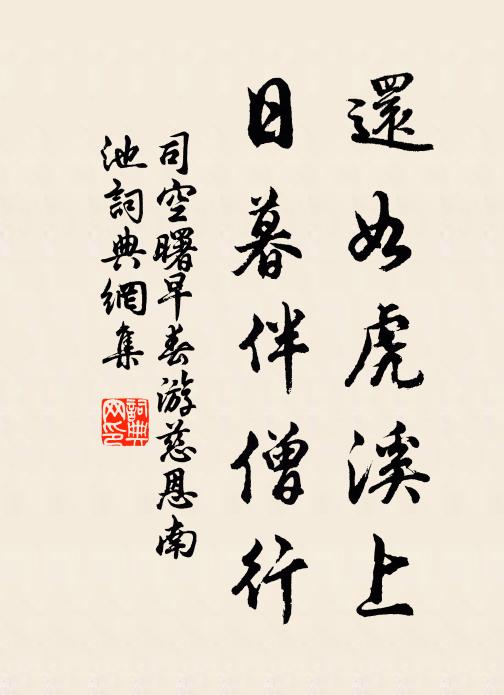 還如虎溪上
日暮伴僧行
司空曙早春游慈恩南
池詞典網集
詞典
网印